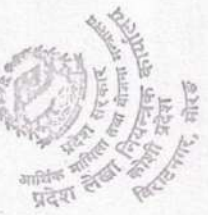 प्रदेश सरकार
आर्थिक मामिला तथा योजना मन्त्रालय
प्रदेश लेखा नियन्त्रक कार्यालय
कोशी प्रदेश
विराटनगर, मोरङ